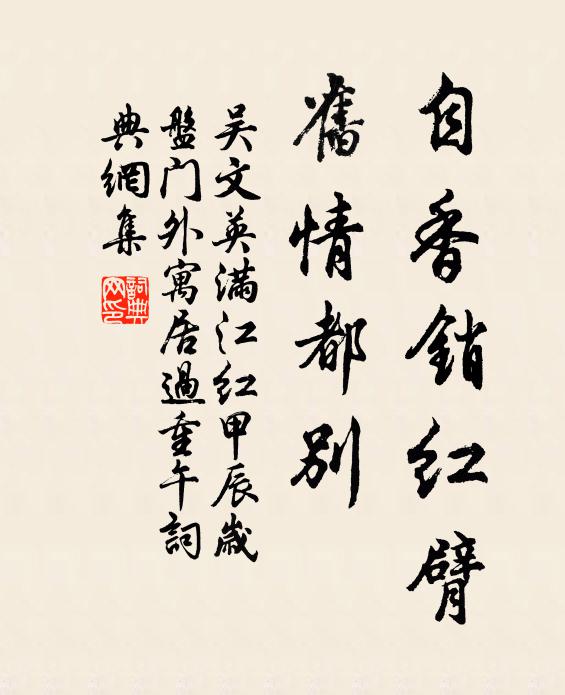 自香銷紅臂
舊情都別
吴文英满江红甲辰歳
盤门外寓居過重午詞
典網集
詞典网印